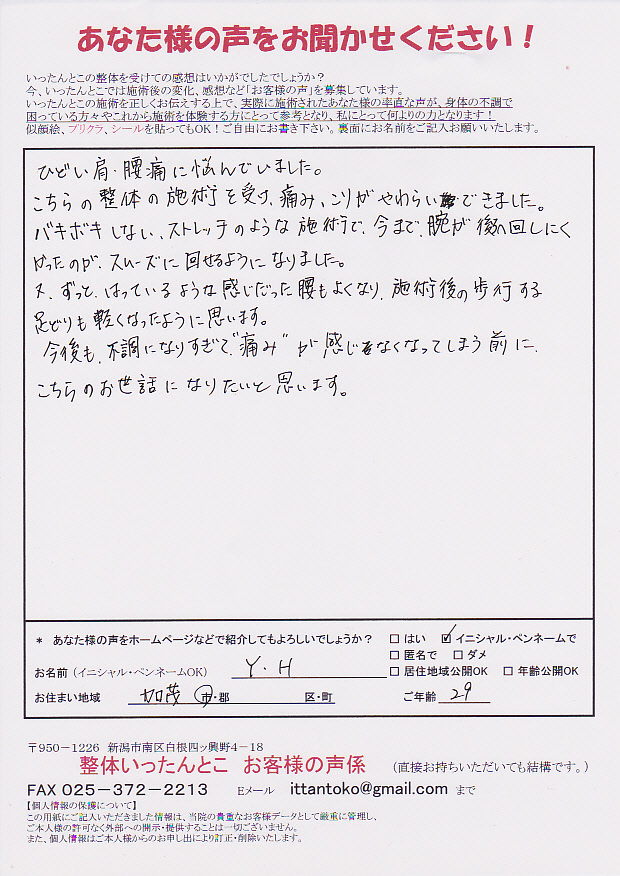 あなた様の声をお聞かせください！
いったんとこの整体を受けての感想はいかがでしたでしょうか？
今、いったんとこでは施術後の変化、感想など「お客様の声」を募集しています。
いったんとこの施術を正しくお伝えする上で、実際に施術されたあなた様の率直な声が、身体の不調で
困っている方々やこれから施術を体験する方にとって参考となり、私にとって何よりの力となります！
似顔絵、プリクラ、シールを貼ってもOK！ご自由にお書き下さい。裏面にお名前をご記入お願いいたします。
ひどい肩・腰痛に悩んでいました。
こちらの整体の施術を受け、痛み、こりがやわらいできました。
バキボキしない、ストレッチのような施術で、今まで、腕が後へ回しにく
かったのが、スムーズに回せるようになりました。
又、ずっと、はっているような感じだった腰もよくなり、施術後の歩行する
足どりも軽くなったように思います。
今後も、不調になりすぎて"痛み"が感じなくなってしまう前に、
こちらのお世話になりたいと思います。
* あなた様の声をホームページなどで紹介してもよろしいでしょうか？ □ はい ☑ イニシャル・ペンネームで
□ 匿名で □ ダメ
お名前（イニシャル・ペンネームOK） Y・H □ 居住地域公開OK □ 年齢公開OK
お住まい地域 加茂 市・郡 区・町 ご年齢 29
〒950－1226 新潟市南区白根四ッ興野4－18
整体いったんとこ お客様の声係 （直接お持ちいただいても結構です。）
FAX 025－372－2213 Eメール ittantoko@gmail.com まで
【個人情報の保護について】
この用紙にご記入いただきました情報は、当院の貴重なお客様データとして厳重に管理し、
ご本人様の許可なく外部への開示・提供することは一切ございません。
また、個人情報はご本人様からのお申し出により訂正・削除いたします。